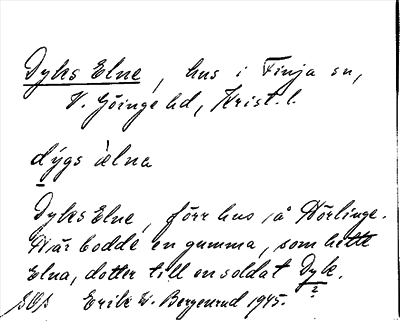 Dyks Elne, hus i Finja sn,
V. Göinge hd, Krist. l.
dýgs èlna
Dyks Elne, förr hus på Hörlinge.
Här bodde en gumma, som hette
Elna, dotter till en soldat Dyk.
?
Erik W. Bergenrud 1945.